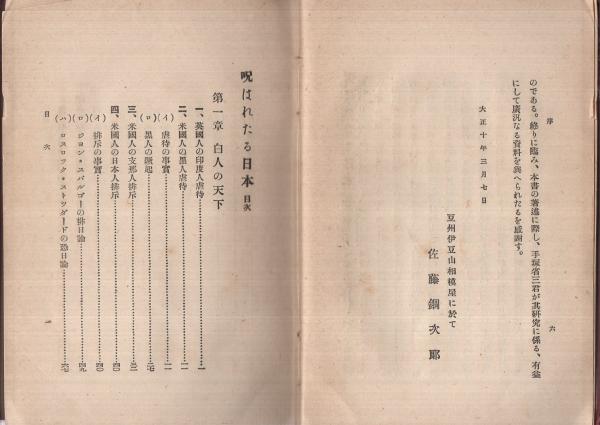 序
六
のである。終りに臨み、本書の著述に際し、手塚省三君が其研究に係る、有益
にして廣汎なる資料を與へられたるを感謝す。
大正十年三月七日
豆州伊豆山相模屋に於て
佐藤鋼次郎
呪はれたる日本 目次
第一章 白人の天下
一、英國人の印度人虐待……一
二、米國人の黑人虐待……一一
(イ) 虐待の事實……一一
(ロ) 黑人の蹶起……二七
三、米國人の支那人排斥……三一
四、米國人の日本人排斥……四〇
(イ) 排斥の事實……四〇
(ロ) ジヨン・スパルゴーの排日論……四九
(ハ) ロスロツク・ストツダードの恐日論……六七
目次
一